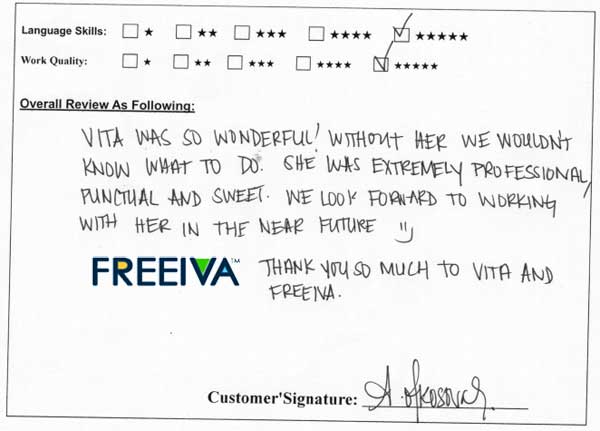 Language Skills: ☐ ★ ☐ ★★ ☐ ★★★ ☐ ★★★★ ☑ ★★★★★
Work Quality: ☐ ★ ☐ ★★ ☐ ★★★ ☐ ★★★★ ☑ ★★★★★
Overall Review As Following:
VITA WAS SO WONDERFUL! WITHOUT HER WE WOULDN'T
KNOW WHAT TO DO. SHE WAS EXTREMELY PROFESSIONAL,
PUNCTUAL AND SWEET. WE LOOK FORWARD TO WORKING
WITH HER IN THE NEAR FUTURE =)
FREEIVA™ THANK YOU SO MUCH TO VITA AND
FREEIVA.
Customer'Signature: A.